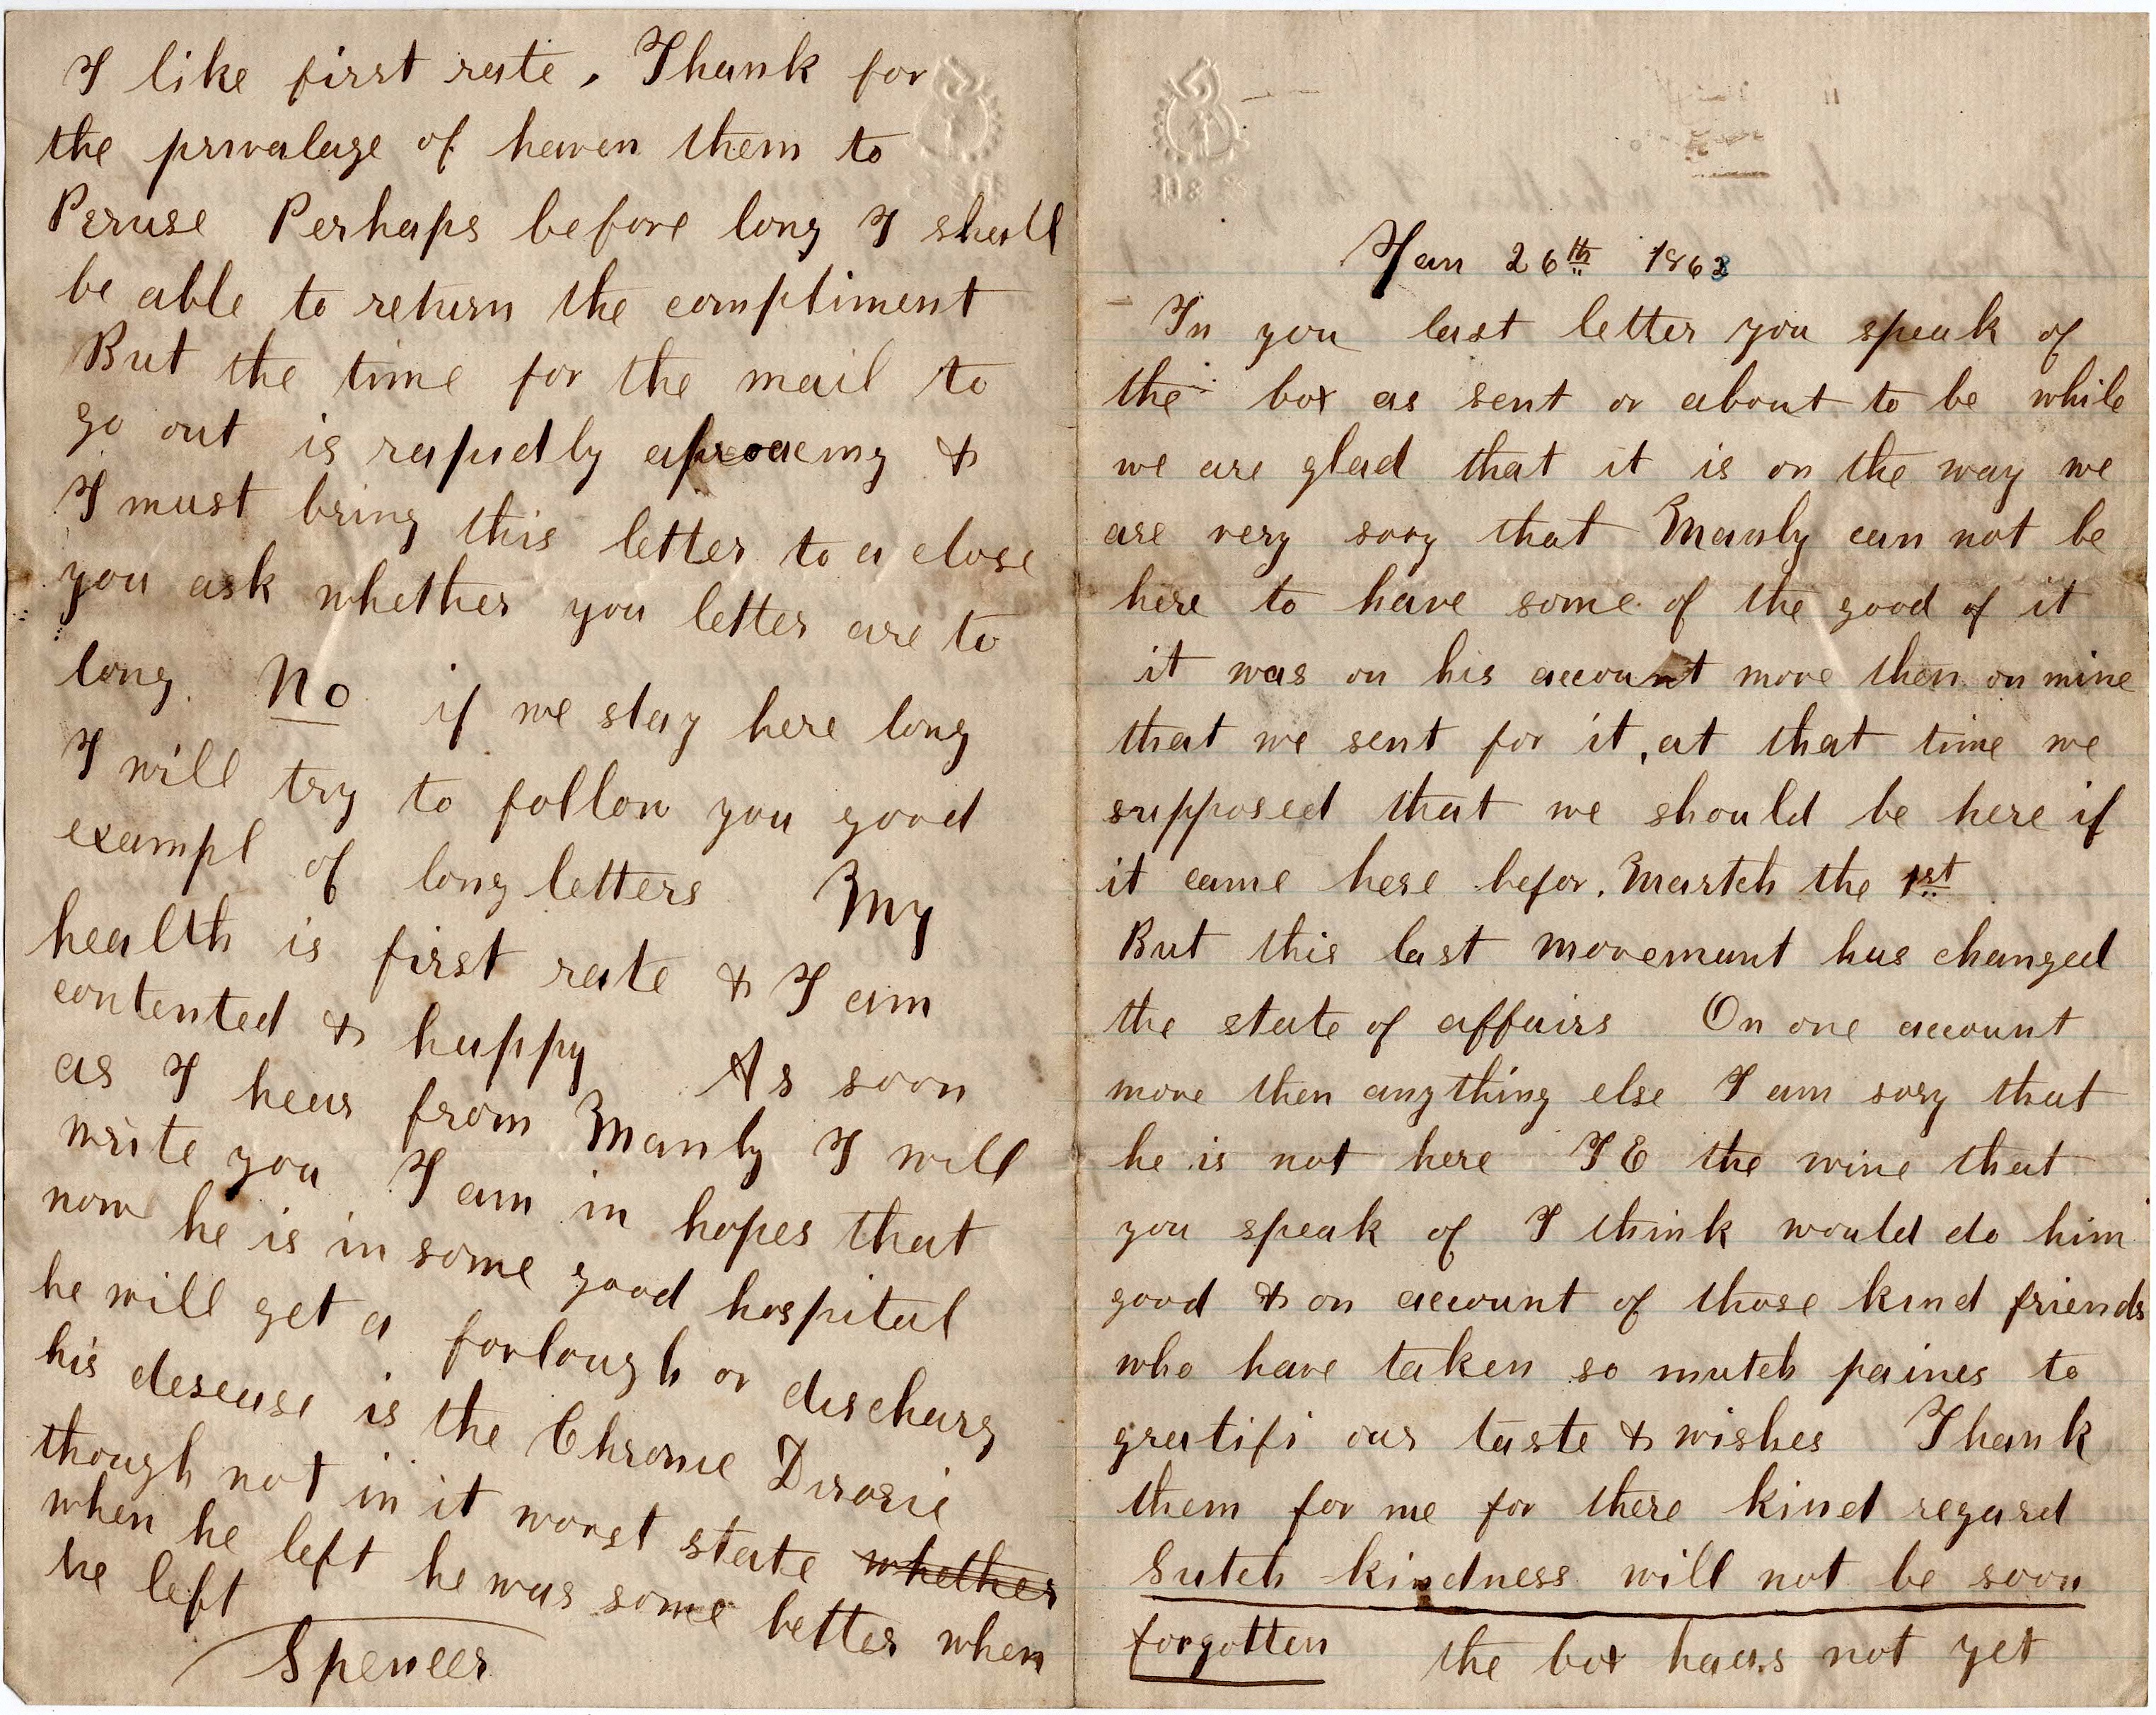 Jan 26th 1863
In you last letter you speak of
the box as sent or about to be while
we are glad that it is on the way we
are very sory that Manly can not be
here to have some of the good of it
it was on his account more then on mine
that we sent for it, at that time we
supposed that we should be here if
it came here befor. Martch the 1st
But this last movemunt has changed
the state of affairs On one account
more then anything else I am sory that
he is not here I E the wine that
you speak of I think would do him
good & on account of those kind friends
who have taken so mutch paines to
gratifi our taste & wishes Thank
them for me for there kind regard
Sutch kindness will not be soon
forgotten the box haus not yet
I like first rate, Thank for
the privalage of haven them to
Peruse Perhaps before long I shall
be able to return the compliment
But the time for the mail to
go out is rapidly aproacing &
I must bring this letter to a close
you ask whether you letter are to
long. No if we stay here long
I will try to follow you good
exampl of long letters My
health is first rate & I am
contented & happy As soon
as I hear from Manly I will
write you I am in hopes that
now he is in some good hospital
he will get a forlough or discharg
his desease is the Chronic Dirorie
though not in it worst state whether
when he left he was some better when
he left
Spencer